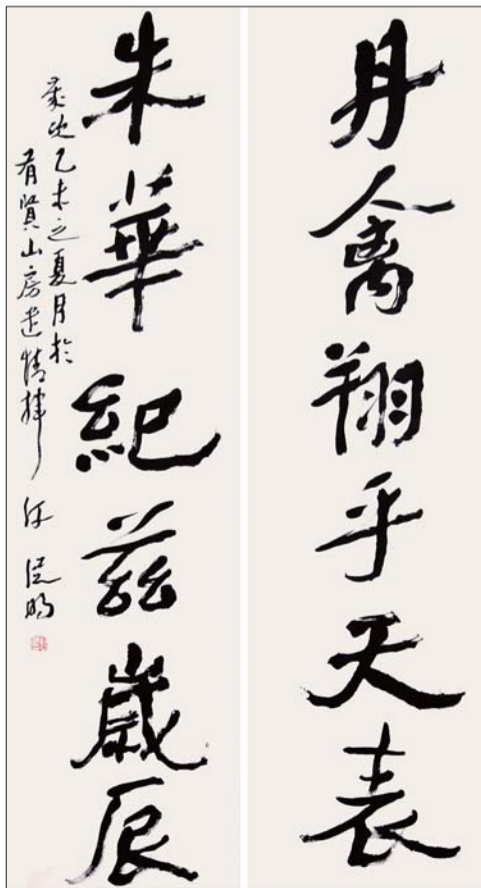 丹禽翔乎天表
朱華紀茲歲辰
歲次乙未之夏月於
有賢山房遣情揮